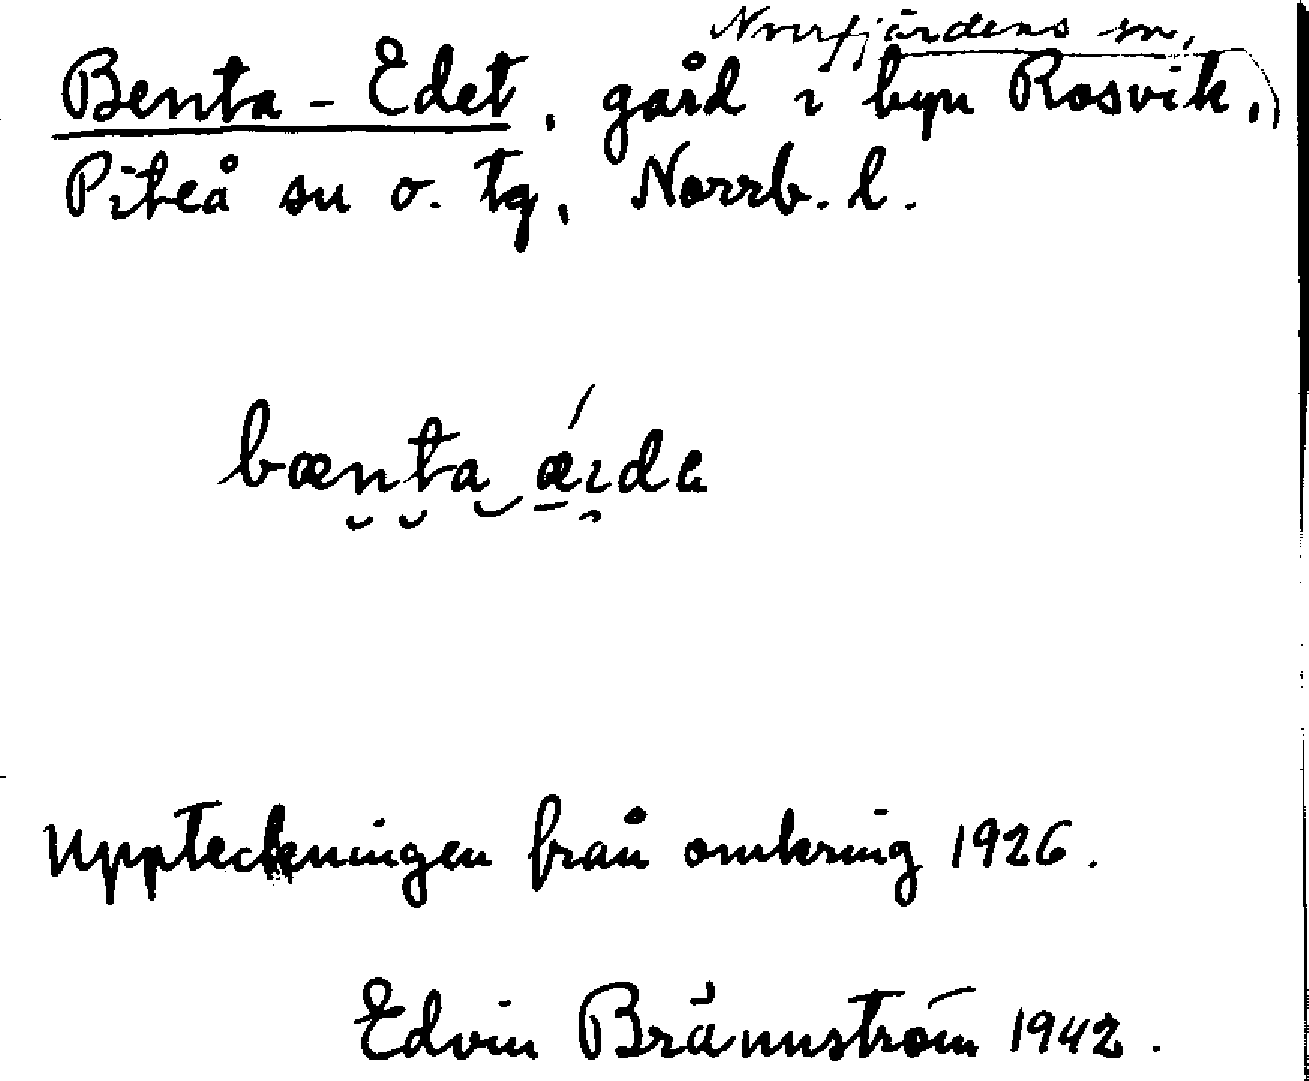 Norrfjärdens sn,
Benta-Edet, gård i byn Rosvik,
Piteå sn o. tg, Norrb. l.
bænta ǽıda
Uppteckningen från omkring 1926.
Edvin Brännström 1942.